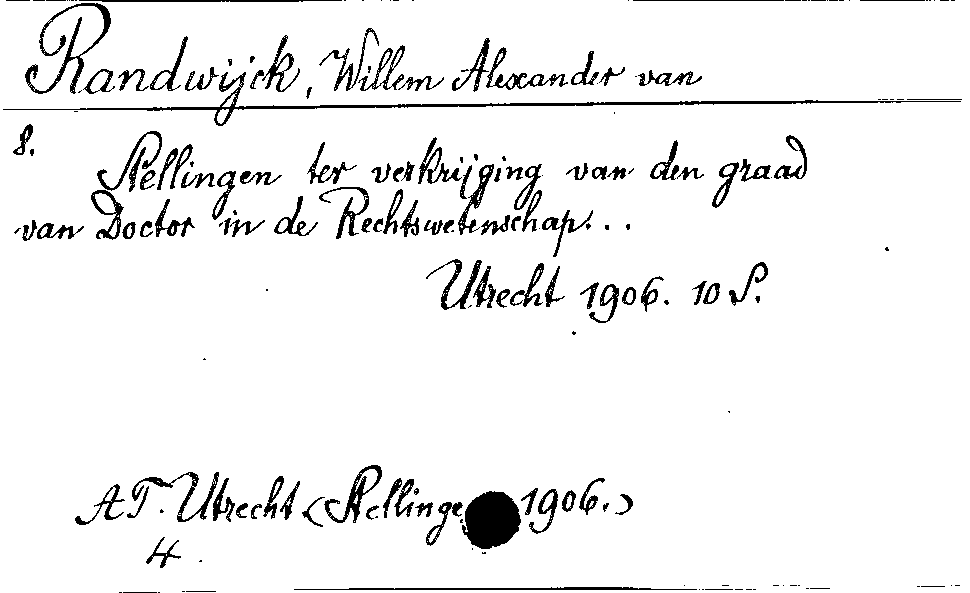 Randwijck, Willem Alexander van
8.
Stellingen ter verkrijging van den graad
van Doctor in de Rechtswetenschap...
Utrecht 1906. 10 S.
AT. Utrecht (Stellinge 1906.)
4